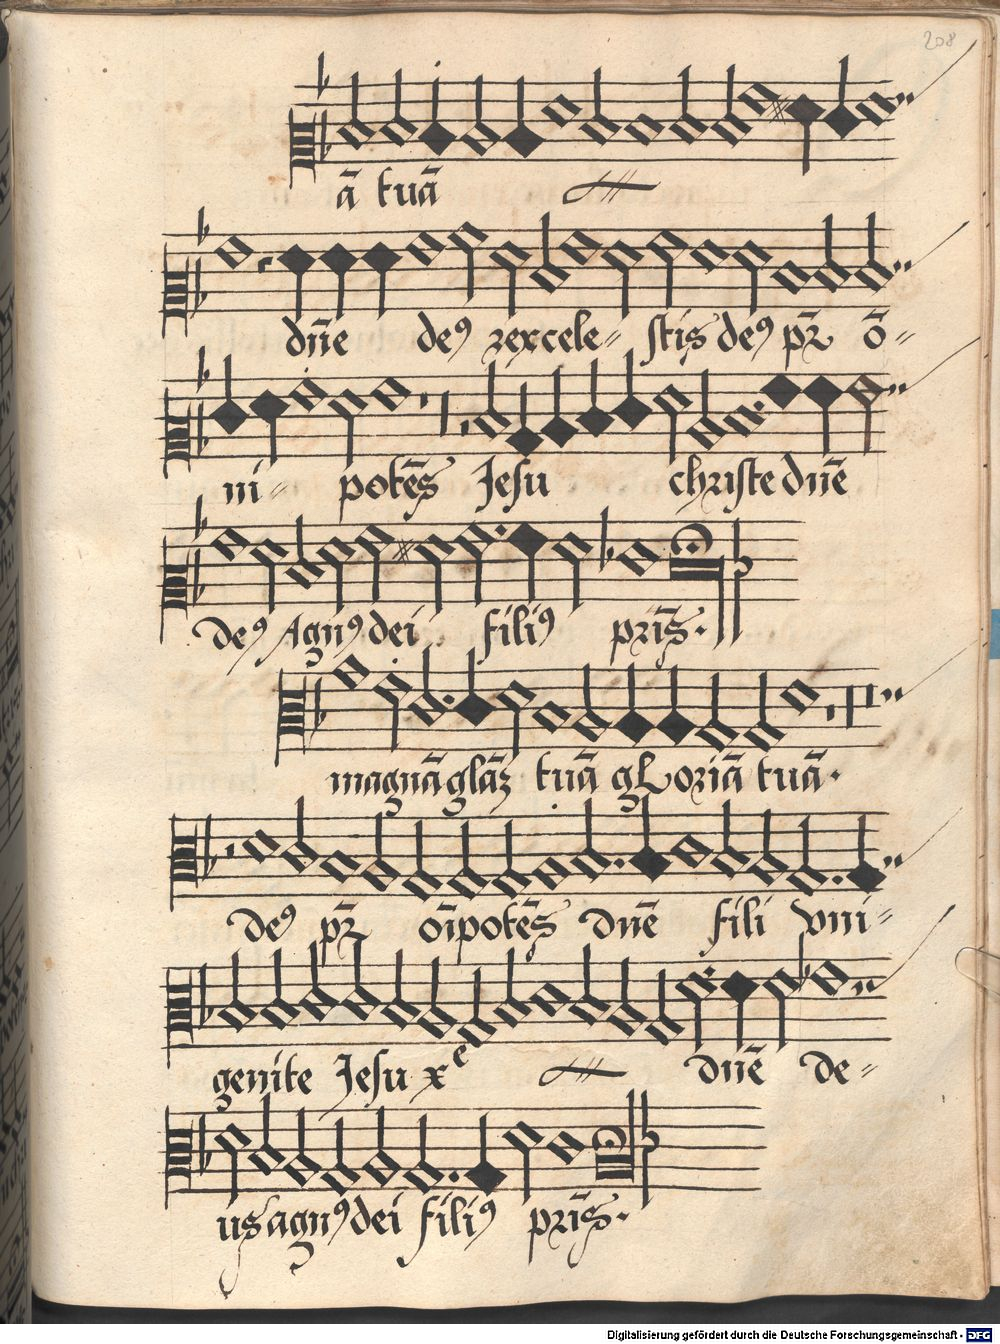 208
ā tuā
dn̄e deꝰ rexcele- stis deꝰ pr̄ ō-
ni- potēs Jesu christe dn̄e
deꝰ Agnꝰ dei filiꝰ prīs.
magnā glāz tuā glLoriā tuā.
deꝰ pr̄ oīpotēs dn̄e fili vni-
genite Jesu xᵉ dn̄e de-
us agnꝰ dei filiꝰ prīs.
Digitalisierung gefördert durch die Deutsche Forschungsgemeinschaft - DFG